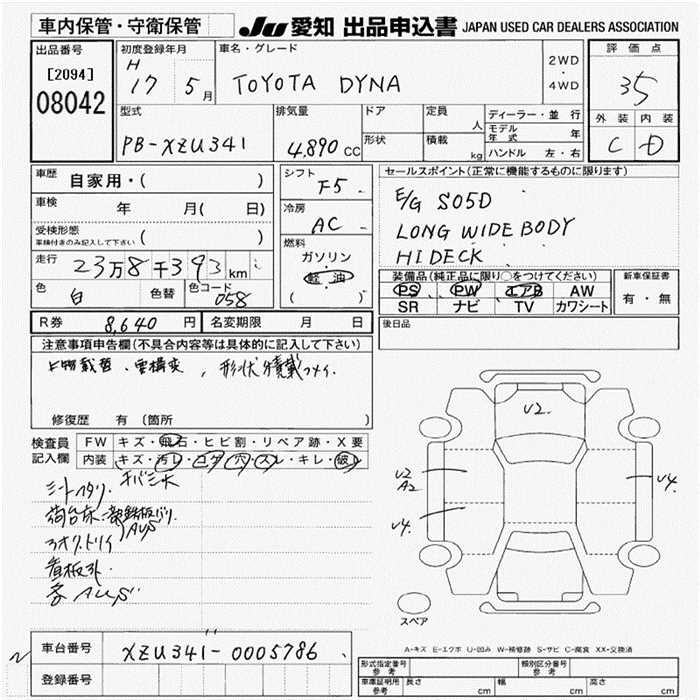 車内保管・守衛保管
JU 愛知 出品申込書 JAPAN USED CAR DEALERS ASSOCIATION
出品番号
[2094]
08042
初度登録年月
H
17 5月
車名・グレード
TOYOTA DYNA
2WD
・
4WD
評価点
35
外装 内装
C D
型式
PB-XZU341
排気量
4,890 CC
ドア
形状
定員
人
積載
kg
ディーラー・並行
モデル年式 年
ハンドル 左・右
車歴
自家用・( )
車検
年 月( 日)
受検形態
車検付きのみ記入して下さい ( )
走行
23万8千393km
色
白
色替
色コード
058
シフト
F5
冷房
AC
燃料
ガソリン
軽油
( )
セールスポイント(正常に機能するものに限ります)
E/G S05D
LONG WIDE BODY
HIDECK
装備品(純正品に限り○をつけてください)
PS PW エアB AW
SR ナビ TV カワシート
新車保証書
有・無
後日品
R券 8,640 円 名変期限 月 日
注意事項申告欄(不具合内容等は具体的に記入して下さい)
修復歴 有 (箇所 )
検査員
記入欄
FW キズ・飛石・ヒビ割・リペア跡・X要
内装 キズ・汚レ・コゲ・穴・スレ・キレ・破レ
シートヘタリ.
看板外
AUS
V2.
V2
A2
V4.
V4.
スペア
A-キズ E-エクボ U-凹み W-補修跡 S-サビ C-腐食 XX-交換済
車台番号 XZU341-0005786
登録番号
形式指定番号
参考
類別区分番号
参考
車庫証明用
参考
長さ cm 幅 cm 高さ cm